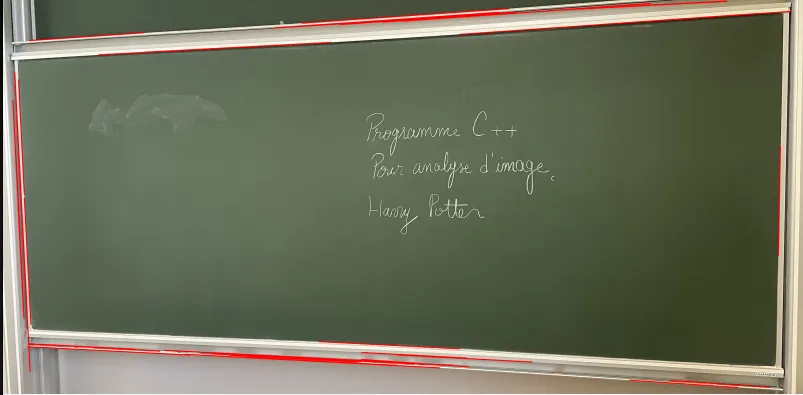 Programme C++
Pour analyse d'image.
Harry Potter